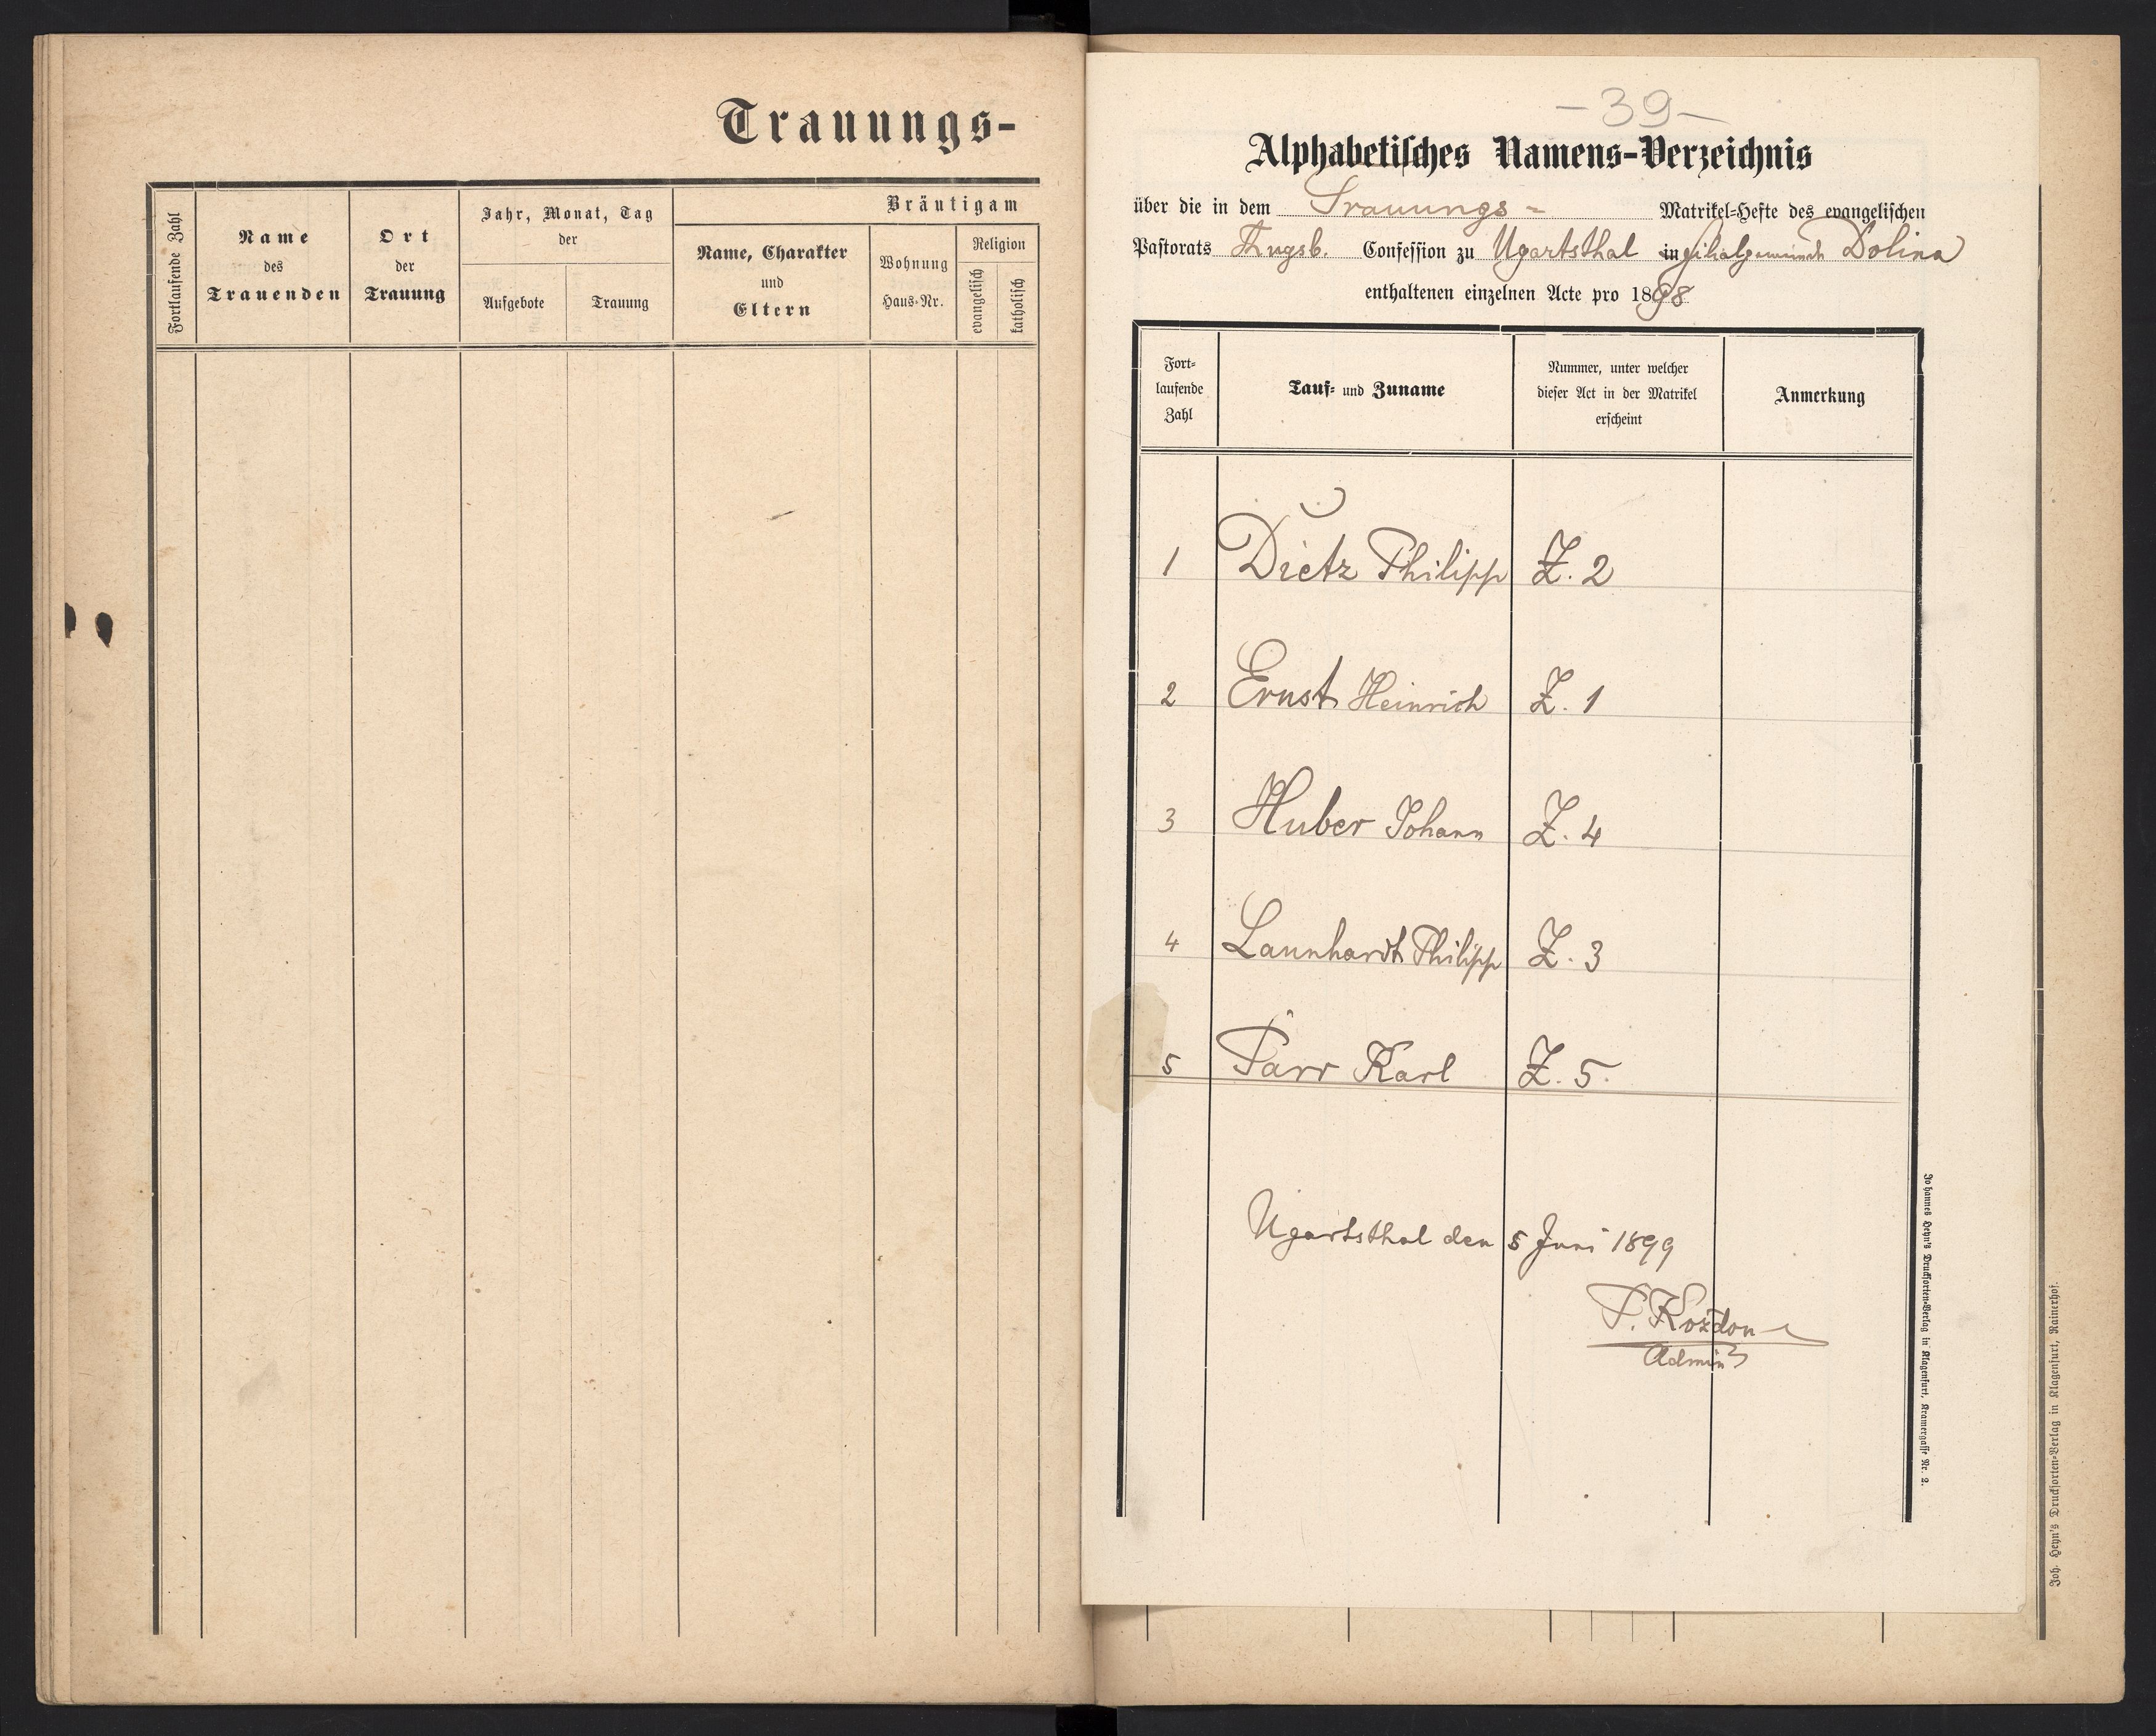 Trauungs-
Fortlaufende Zahl
Name
des
Trauenden
Ort
der
Trauung
Jahr, Monat, Tag
der
Aufgebote
Trauung
Bräutigam
Name, Charakter
und
Eltern
Wohnung
Haus-Nr.
Religion
evangelisch
katholisch
-39-
Alphabetisches Namens-Verzeichnis
über die in dem Trauungs- Matrikel-Hefte des evangelischen
Pastorats Augsb. Confession zu Ugartsthal in Filialgemeinde Dolina
enthaltenen einzelnen Acte pro 1898
Fort-
laufende
Zahl
Tauf- und Zuname
Nummer, unter welcher
dieser Act in der Matrikel
erscheint
Anmerkung
1 Dietz Philipp Z. 2
2 Ernst Heinrich Z. 1
3 Huber Johann Z. 4
4 Launhardt Philipp Z. 3
5 Parr Karl Z. 5.
Ugartsthal den 5 Juni 1899
Kozdon
Admin
Johannes Heyn's Drucksorten-Verlag in Klagenfurt, Kramergasse Nr. 2.
Joh. Heyn's Drucksorten-Verlag in Klagenfurt, Rainerhof.